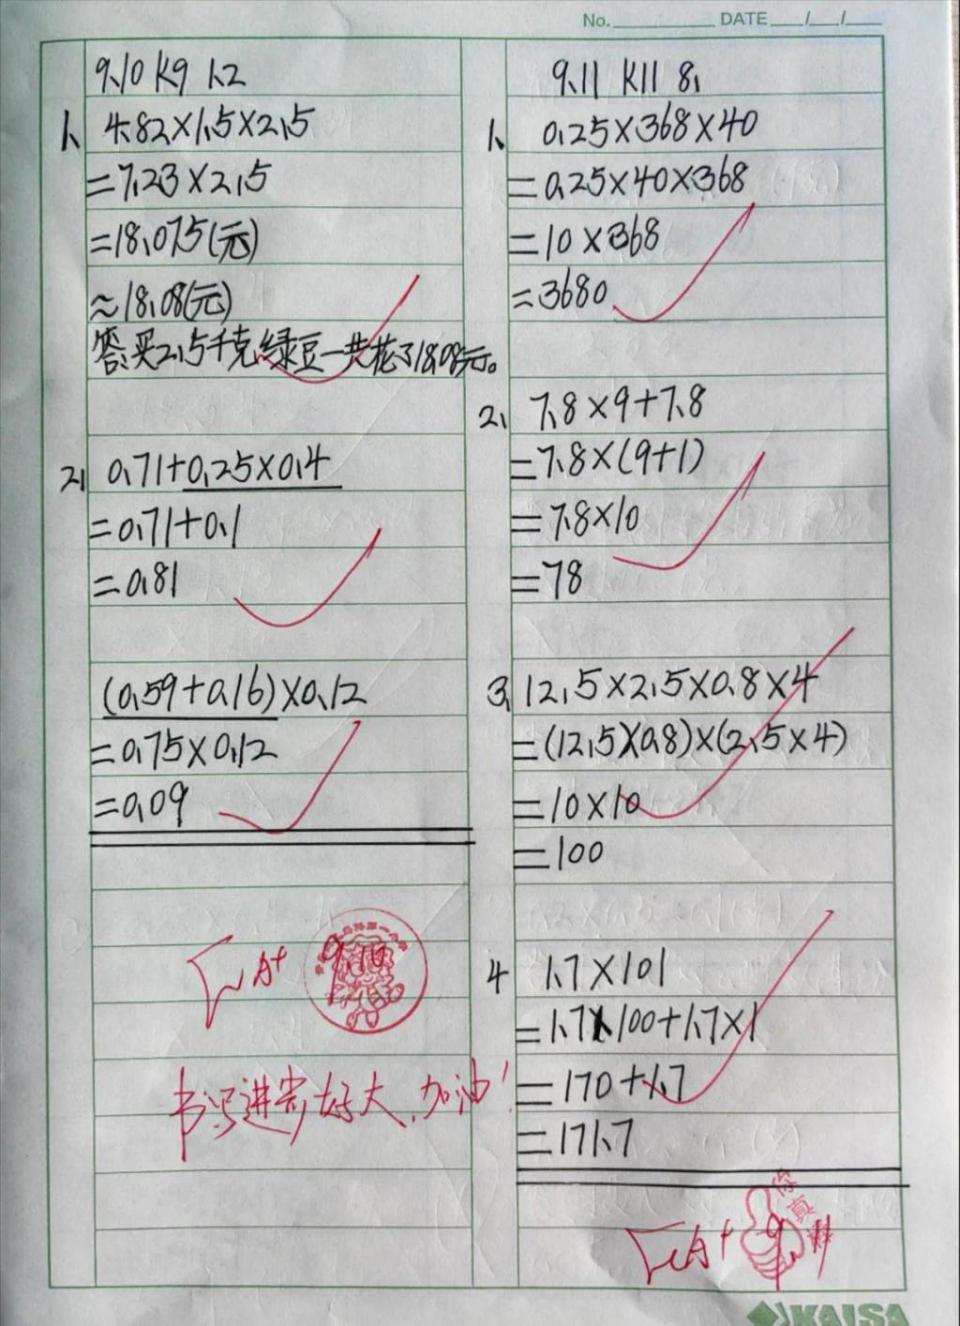 No. DATE / /
9.10 K9 1.2
1. 4.82×1.5×2.5
=7.23×2.5
=18.075(元)
≈18.08(元)
答:买2.5千克绿豆一共花了18.08元。
2. 0.71+0.25×0.4
=0.71+0.1
=0.81
(0.59+0.16)×0.12
=0.75×0.12
=0.09
A+
9.10
书写进步好大,加油!
9.11 K11 8.
1. 0.25×368×40
=0.25×40×368
=10×368
=3680
2. 7.8×9+7.8
=7.8×(9+1)
=7.8×10
=78
3. 12.5×2.5×0.8×4
=(12.5×0.8)×(2.5×4)
=10×10
=100
4 1.7×101
=1.7×100+1.7×1
=170+1.7
=171.7
A+
你真棒
KAISA